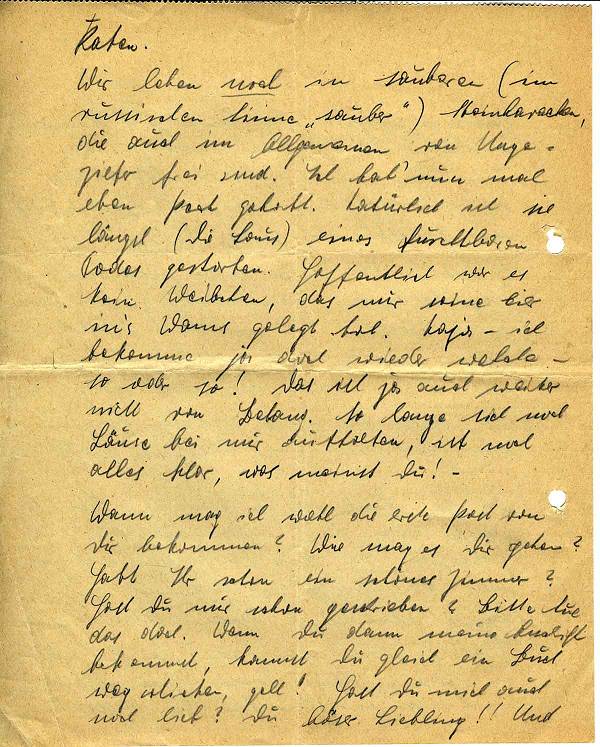 Raten.
Wir leben noch in sauberen (im
russischen Sinne „sauber“) Steinbaracken,
die auch im Allgemeinen von Unge-
ziefer frei sind. Ich hab' nun mal
eben Pech gehabt. Natürlich ist sie
längst (die Laus) eines furchtbaren
Todes gestorben. Hoffentlich war es
kein Weibchen, das mir seine Eier
in's Wams gelegt hat. Naja – ich
bekomme ja doch wieder welche –
so oder so! Das ist ja auch weiter
nicht von Belang. So lange sich noch
Läuse bei mir aufhalten, ist noch
alles klar, was meinst Du! –
Wann mag ich wohl die erste Post von
Dir bekommen? Wie mag es Dir gehen?
Habt Ihr schon ein schönes Zimmer?
Hast Du mir schon geschrieben? Bitte tue
das doch. Wenn Du dann meine Anschrift
bekommst, kannst Du gleich ein Buch
wegschicken, gell! Hast Du mich auch
noch lieb? Du böser Liebling!! Und